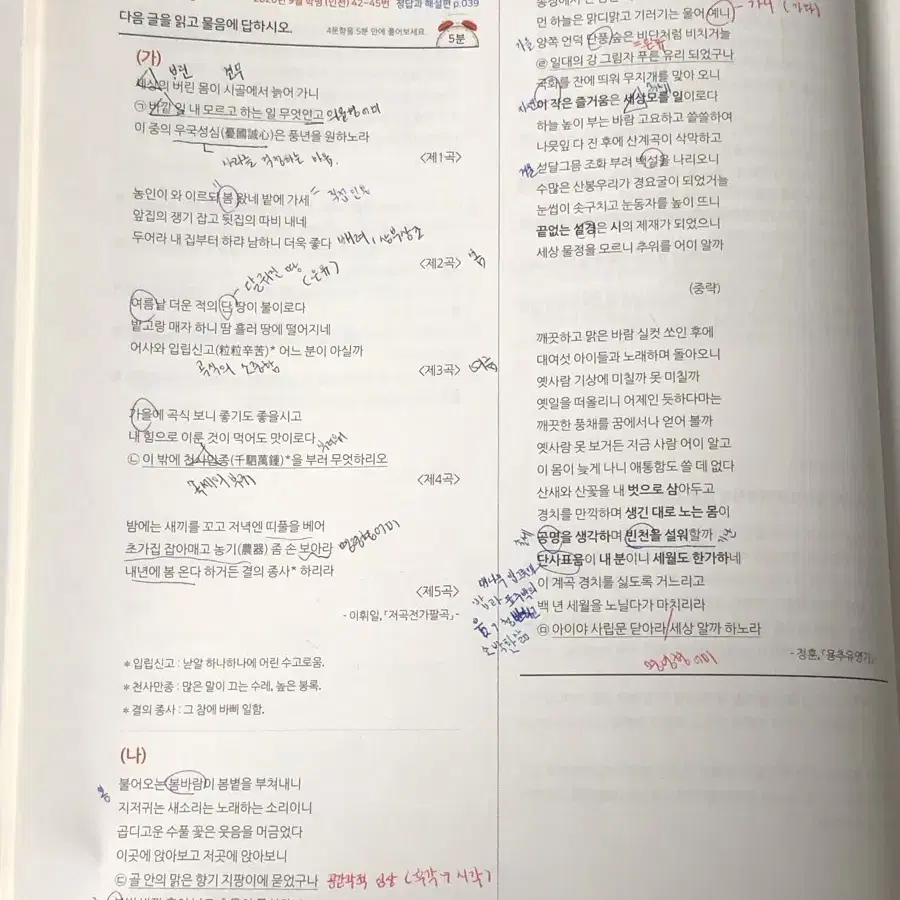 2020년 9월 학평(인천) 42~45번 정답과 해설편 p.039
다음 글을 읽고 물음에 답하시오.
4문항을 5분 안에 풀어보세요.
5분
(가)
세상의 버린 몸이 시골에서 늙어 가니
㉠ 바깥 일 내 모르고 하는 일 무엇인고 의문형 어미
이 중의 우국성심(憂國誠心)은 풍년을 원하노라
나라를 걱정하는 마음.
<제1곡>
농인이 와 이르되 봄 왔네 밭에 가세 직접 인용
앞집의 쟁기 잡고 뒷집의 따비 내네
두어라 내 집부터 하랴 남하니 더욱 좋다 배려, 상부상조
<제2곡> 봄
달궈진 땅 (은유)
여름날 더운 적의 단 땅이 불이로다
밭고랑 매자 하니 땀 흘러 땅에 떨어지네
어사와 입립신고(粒粒辛苦)* 어느 분이 아실까
곡식의 소중함
<제3곡> 여름
가을에 곡식 보니 좋기도 좋을시고
내 힘으로 이룬 것이 먹어도 맛이로다
㉡ 이 밖에 천사만종(千駟萬鍾)*을 부러 무엇하리오
<제4곡>
밤에는 새끼를 꼬고 저녁엔 띠풀을 베어
초가집 잡아매고 농기(農器) 좀 손 보아라 명령형 어미
내년에 봄 온다 하거든 결의 종사* 하리라
<제5곡>
- 이휘일, 「저곡전가팔곡」 -
* 입립신고 : 낟알 하나하나에 어린 수고로움.
* 천사만종 : 많은 말이 끄는 수레, 높은 봉록.
* 결의 종사 : 그 참에 바삐 일함.
(나)
불어오는 봄바람이 봄볕을 부쳐내니
봄
지저귀는 새소리는 노래하는 소리이니
곱디고운 수풀 꽃은 웃음을 머금었다
이곳에 앉아보고 저곳에 앉아보니
㉢ 골 안의 맑은 향기 지팡이에 묻었구나 공감각적 심상 (후각→시각)
먼 하늘은 맑디맑고 기러기는 울어 예니 가니 (가다)
가을 양쪽 언덕 단풍 숲은 비단처럼 비치거늘
=은유
㉣ 일대의 강 그림자 푸른 유리 되었구나
국화를 잔에 띄워 무지개를 맞아 오니
이 작은 즐거움은 세상모를 일이로다
하늘 높이 부는 바람 고요하고 쓸쓸하여
나뭇잎 다 진 후에 산계곡이 삭막하고
겨울 섣달그믐 조화 부려 백설을 나리오니
수많은 산봉우리가 경요굴이 되었거늘
눈썹이 솟구치고 눈동자를 높이 뜨니
끝없는 설경은 시의 제재가 되었으니
세상 물정을 모르니 추위를 어이 알까
(중략)
깨끗하고 맑은 바람 실컷 쏘인 후에
대여섯 아이들과 노래하며 돌아오니
옛사람 기상에 미칠까 못 미칠까
옛일을 떠올리니 어제인 듯하다마는
깨끗한 풍채를 꿈에서나 얻어 볼까
옛사람 못 보거든 지금 사람 어이 알고
이 몸이 늦게 나니 애통함도 쓸 데 없다
산새와 산꽃을 내 벗으로 삼아두고
경치를 만끽하며 생긴 대로 노는 몸이
공명을 생각하며 빈천을 설워할까
단사표음이 내 분이니 세월도 한가하네
이 계곡 경치를 싫도록 거느리고
백 년 세월을 노닐다가 마치리라
㉤ 아이야 사립문 닫아라 세상 알까 하노라
명령형 어미
- 정훈, 「용추유영가」